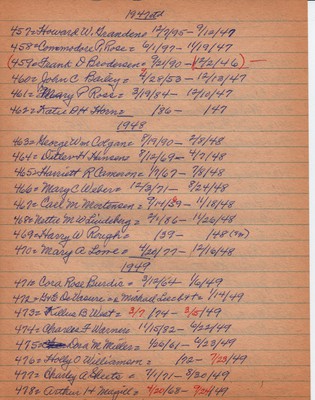 1947 ctd
457= Howard W. Brandon= 12/7/95- 9/10/47
458= Commodore P. Rose= 6/1/97- 11/19/47
(459= Frank D Brodersen= 9/21/90- (12/2/46) -
460= John C Bailey= 4/28/53- 12/12/47
461= Mary P Ross= 3/19/84- 12/10/47
462= Katie D H Horn= /86- /47
1948
463= George Wm Colgan= 8/19/90- 2/8/48
464= Ditlev H Hansen= 8/12/69- 4/7/48
465= Harriett R Cameron= 1/7/67- 7/8/48
466= Mary C Weber= 12/3/71- 8/24/48
467= Carl M Mortensen= 9/14/89- 11/18/48
468= Nettie M W Lindeberg= 2/1/86- 11/26/48
469= Harry W Rough= /39- /48
470= Mary A Lowe= 4/20/77- 12/16/48
1949
471= Cora Rose Burdic= 3/12/64- 1/6/49
472= DeVasure Michael= 1/14/49
473= Lillus B West= 3/7/04- 3/5/49
474= Charles F Warner= 11/15/82- 4/22/49
475= Dora M Miller= 1/26/61- 4/23/49
476= Holly O Williamson= /72- 7/23/49
477= Charley A Shuts= 7/1/71- 3/30/49
478= Arthur H Magill= 4/20/68- 9/21/49